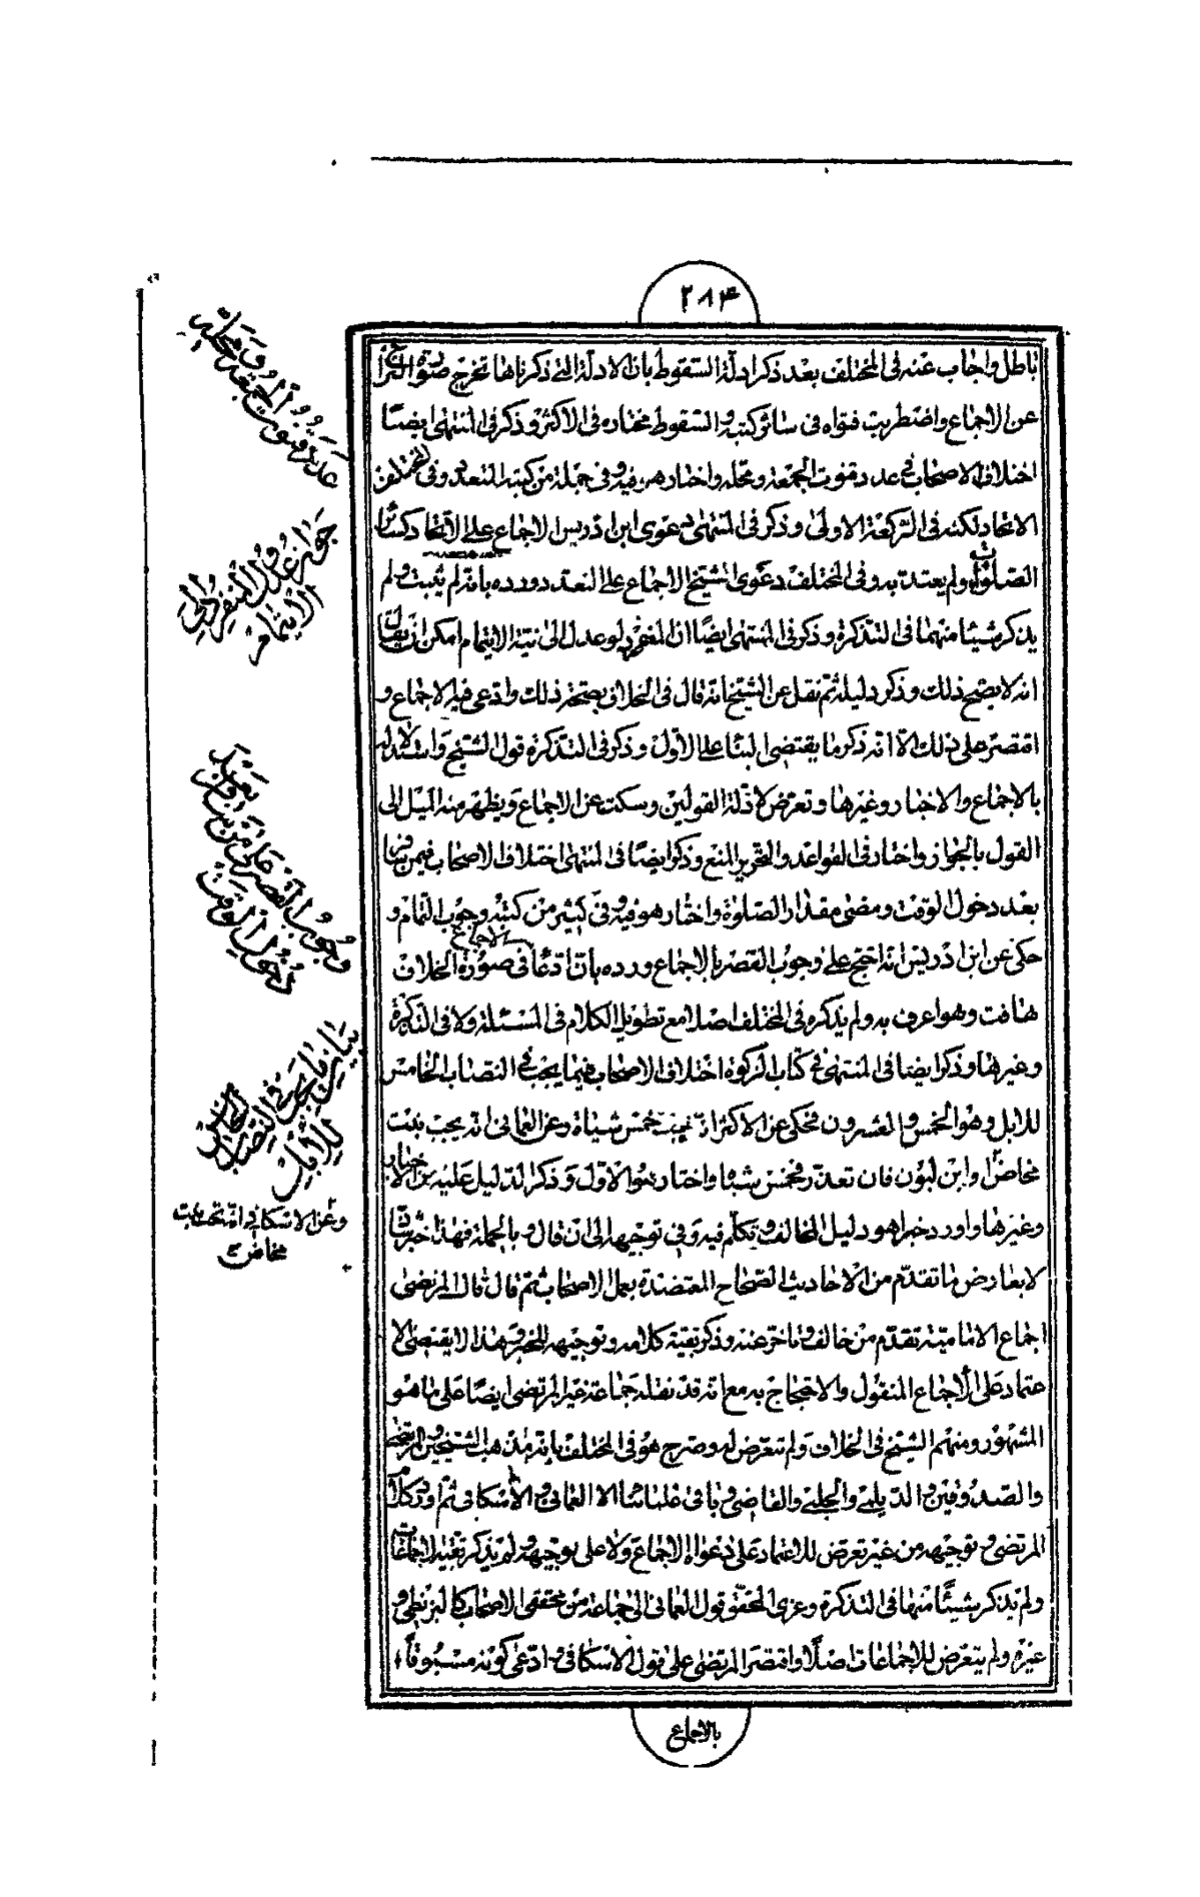 ٢٨٤
باطل واجاب عنه فى المختلف بعد ذكر ادلة السقوط بان الادلة التى ذكرناها تخرج صورة النزاع
عن الاجماع واضطربت فتواه فى سائر كتبه والسقوط مختاره فى الاكثر وذكر فى المنتهى ايضًا
اختلاف الاصحاب فى عدد قنوت الجمعة ومحله واختار هو فيه وفى جملة من كتبه التعدد وفى المختلف
الاتحاد لكنه فى الركعة الاولى وذكر فى المنتهى دعوى ابن ادريس الاجماع على الاتحاد كسائر
الصلوات ولم يعتد به وفى المختلف دعوى الشيخ الاجماع على التعدد ورده بانه لم يثبت ولم
يذكر شيئا منهما فى التذكرة وذكر فى المنتهى ايضًا ان المنفرد لو عدل الى نية الايتمام امكن ان يقال
انه لا يصح ذلك وذكر دليله ثم نقل عن الشيخ انه قال فى الخلاف بصحة ذلك وادعى فيه الاجماع و
اقتصر على ذلك الا انه ذكر ما يقتضى البناء على الاول وذكر فى التذكرة قول الشيخ واستدلاله
بالاجماع والاخبار وغيرها وتعرض لادلة القولين وسكت عن الاجماع ويظهر منه الميل الى
القول بالجواز واختار فى القواعد والتحرير المنع وذكر ايضًا فى المنتهى اختلاف الاصحاب فيمن سافر
بعد دخول الوقت ومضى مقدار الصلوة واختار هو فيه وفى كثير من كتبه وجوب التمام و
حكى عن ابن ادريس انه احتج على وجوب القصر بالاجماع ورده بان ادعاء الاجماع فى صورة الخلاف
هافت وهو اعرف به ولم يذكره فى المختلف اصلا مع تطويل الكلام فى المسئلة ولا فى التذكرة
وغيرها وذكر ايضا فى المنتهى فى كتاب الزكوة اختلاف الاصحاب فيما يجب فى النصاب الخامس
للابل وهو الخمس والعشرون فحكى عن الاكثر ان فيه خمس شياة وعن العمانى انه يجب بنت
مخاض او ابن لبون فان تعذر فخمس شياه واختار هو الاول وذكر الدليل عليه من الاخبار
وغيرها واورد خبرا هو دليل المخالف وتكلم فيه وفى توجيهه الى ان قال وبالجملة فهذا خبر شاذ
لا يعارض ما تقدم من الاحاديث الصحاح المعتضدة بعمل الاصحاب ثم قال قال المرتضى
اجماع الامامية تقدم من خالف وتاخر عنه وذكر بقية كلامه وتوجيهه للخبر وهذا لا يقتضى الا
عتماد على الاجماع المنقول والاحتجاج به مع انه قد نقله جماعة غير المرتضى ايضًا على ما هو
المشهور ومنهم الشيخ فى الخلاف ولم تتعرض له وصرح هو فى المختلف بانه مذهب الشيخين والمرتضى
والصدوقين والديلمى والحلبى والقاضى وباقى علمائنا الا العمانى والاسكافى ثم اورد كلام
المرتضى وتوجيهه من غير تعرض للاعتماد على دعواه الاجماع ولا على توجيهه ولم يذكر بقية الاجماعات
ولم يذكر شيئًا منها فى التذكرة وعزى المحقق قول العمانى الى جماعة من محققى الاصحاب كالبزنطى و
غيره ولم يتعرض للاجماعات اصلًا واقتصر المرتضى على قول الاسكافى وادعى كونه مسبوقاً
بالاجماع
عدد قنوت الجمعة ومحله
جواز عدول المنفرد الى
الايتمام
وجوب القصر على من سافر بعد
دخول الوقت
بيان ما يجب فى النصاب الخامس
للابل
وعن الاسكافى انه تجب بنت
مخاض